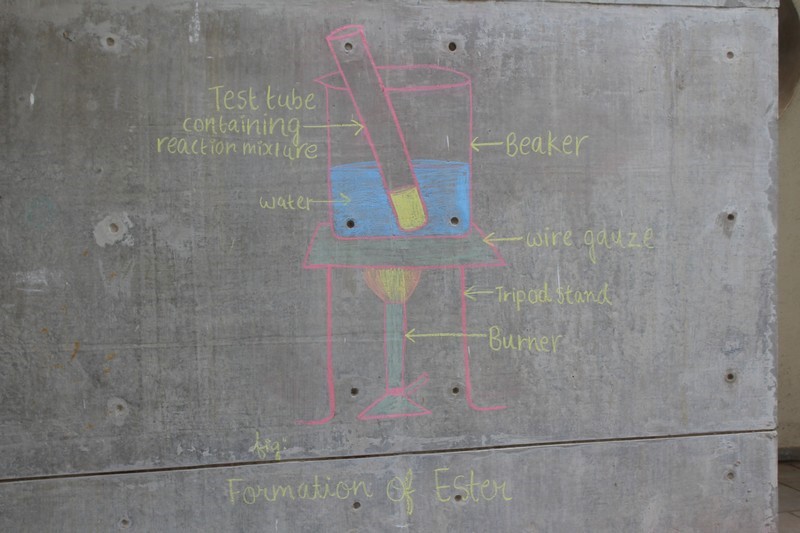 Test tube
containing
reaction mixture
Beaker
water
wire gauze
Tripod stand
Burner
fig:
Formation of Ester